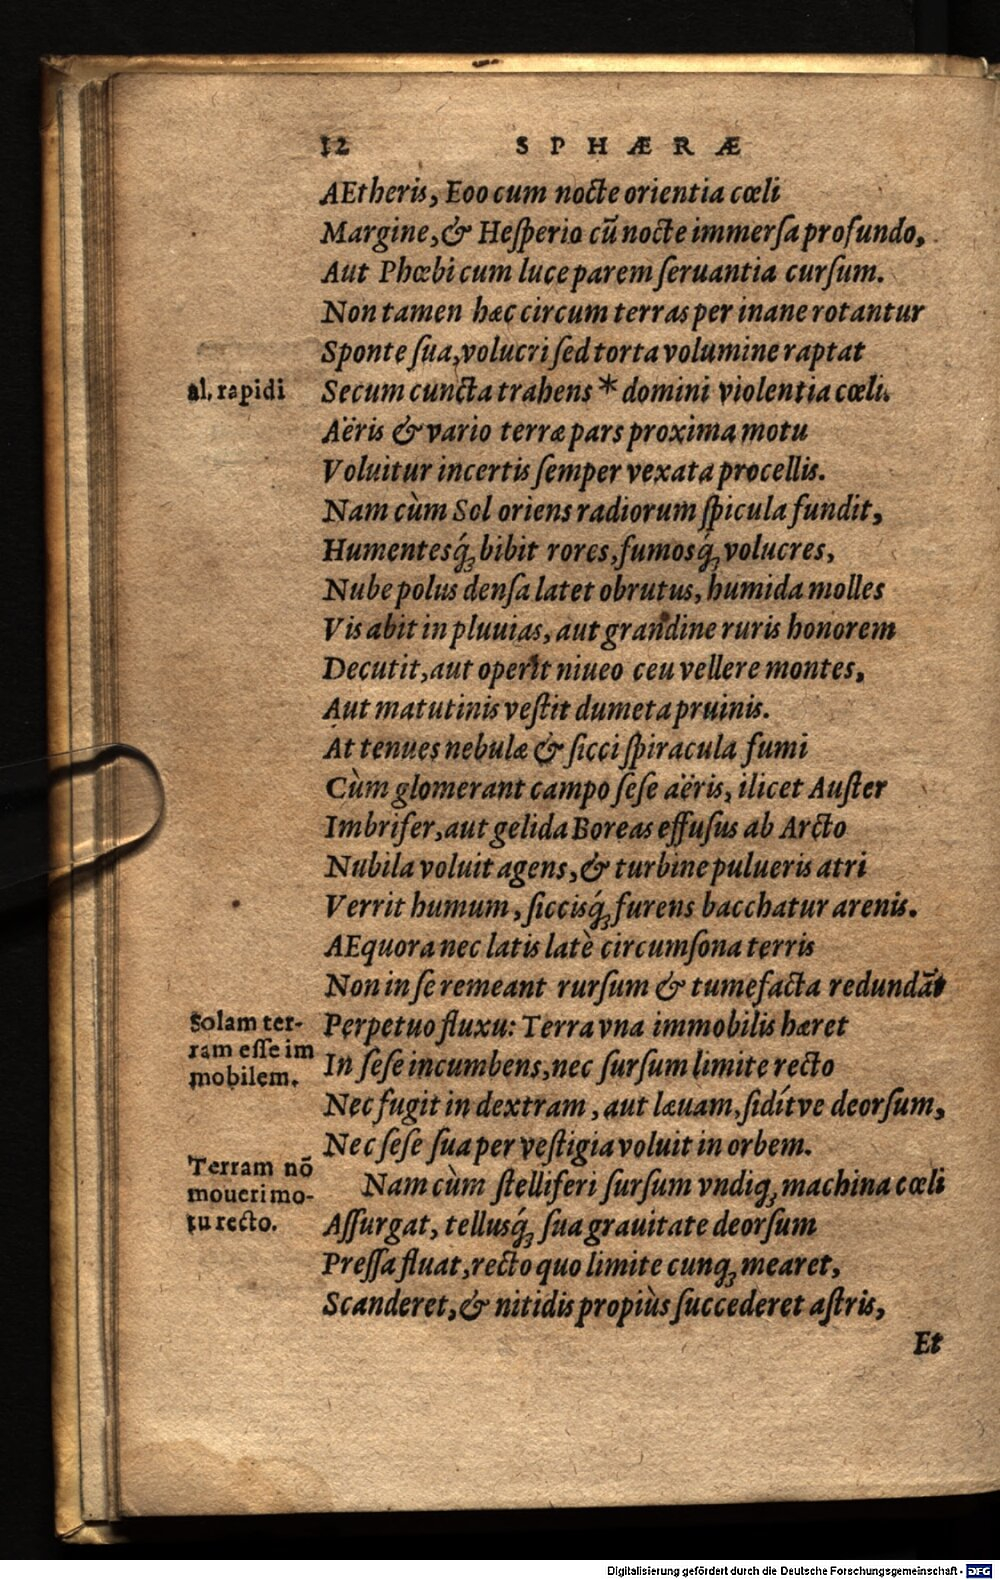 12 SPHÆRÆ
AEtheris, Eoo cum nocte orientia cœli
Margine, & Hesperio cū nocte immersa profundo,
Aut Phœbi cum luce parem seruantia cursum.
Non tamen hæc circum terras per inane rotantur
Sponte sua, volucri sed torta volumine raptat
al. rapidi
Secum cuncta trahens * domini violentia cœli.
Aëris & vario terræ pars proxima motu
Voluitur incertis semper vexata procellis.
Nam cùm Sol oriens radiorum spicula fundit,
Humentesq́; bibit rores, fumosq́; volucres,
Nube polus densa latet obrutus, humida molles
Vis abit in pluuias, aut grandine ruris honorem
Decutit, aut operit niueo ceu vellere montes,
Aut matutinis vestit dumeta pruinis.
At tenues nebulæ & sicci spiracula fumi
Cùm glomerant campo sese aëris, ilicet Auster
Imbrifer, aut gelida Boreas effusus ab Arcto
Nubila voluit agens, & turbine pulueris atri
Verrit humum, siccisq́; furens bacchatur arenis.
AEquora nec latis latè circumsona terris
Non in se remeant rursum & tumefacta redundāt
Solam ter-
ram esse im
mobilem.
Perpetuo fluxu: Terra vna immobilis hæret
In sese incumbens, nec sursum limite recto
Nec fugit in dextram, aut læuam, sidítve deorsum,
Nec sese sua per vestigia voluit in orbem.
Terram nō
moueri mo-
tu recto.
Nam cùm stelliferi sursum vndiq; machina cœli
Assurgat, tellusq́; sua grauitate deorsum
Pressa fluat, recto quo limite cunq; mearet,
Scanderet, & nitidis propiùs succederet astris,
Et
Digitalisierung gefördert durch die Deutsche Forschungsgemeinschaft - DFG